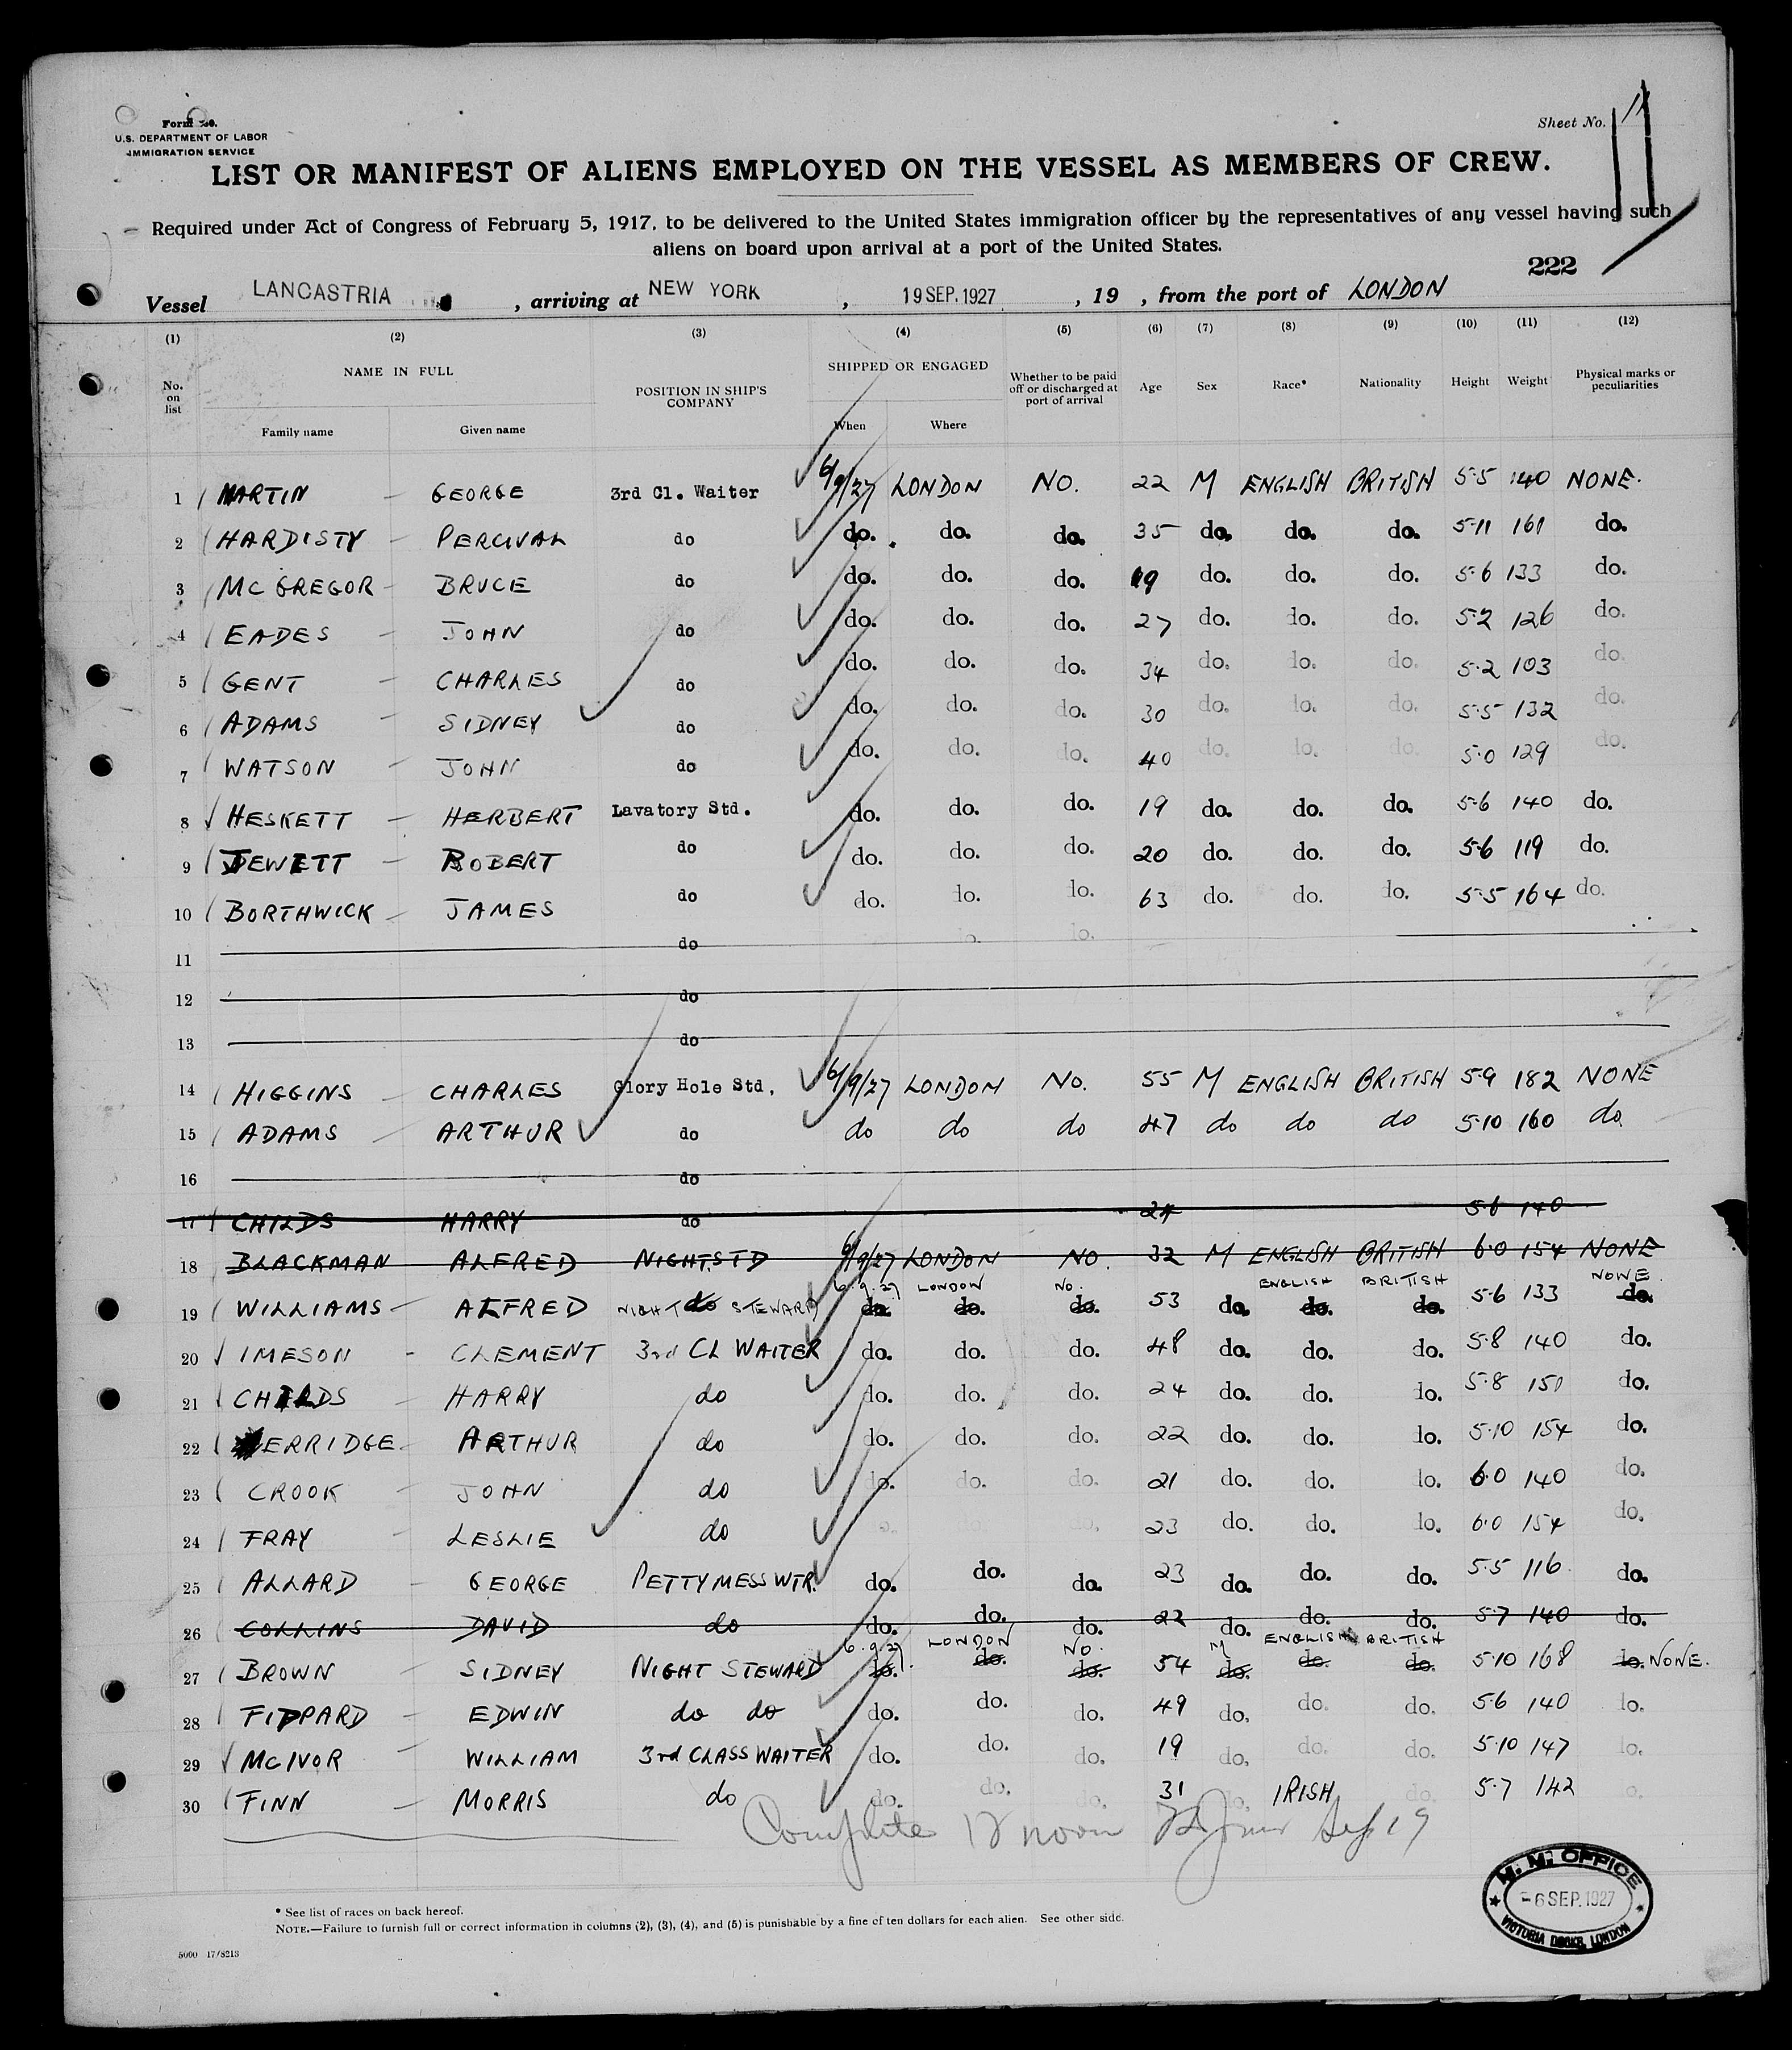 Form
U.S. DEPARTMENT OF LABOR
IMMIGRATION SERVICE
Sheet No. 11
LIST OR MANIFEST OF ALIENS EMPLOYED ON THE VESSEL AS MEMBERS OF CREW.
Required under Act of Congress of February 5, 1917, to be delivered to the United States immigration officer by the representatives of any vessel having such
aliens on board upon arrival at a port of the United States.
222
Vessel LANCASTRIA , arriving at NEW YORK , 19 SEP. 1927 , 19 , from the port of LONDON
(1) (2) (3) (4) (5) (6) (7) (8) (9) (10) (11) (12)
No. on list NAME IN FULL POSITION IN SHIP'S COMPANY SHIPPED OR ENGAGED Whether to be paid off or discharged at port of arrival Age Sex Race* Nationality Height Weight Physical marks or peculiarities
Family name Given name When Where
1 MARTIN - GEORGE 3rd Cl. Waiter 6/9/27 LONDON NO. 22 M ENGLISH BRITISH 5·5 140 NONE.
2 HARDISTY - PERCIVAL do do. do. do. 35 do. do. do. 5·11 161 do.
3 MC GREGOR - BRUCE do do. do. do. 19 do. do. do. 5·6 133 do.
4 EADES - JOHN do do. do. do. 27 do. do. do. 5·2 126 do.
5 GENT - CHARLES do do. do. do. 34 do. do. do. 5·2 103 do.
6 ADAMS - SIDNEY do do. do. do. 30 do. do. do. 5·5 132 do.
7 WATSON - JOHN do do. do. do. 40 do. do. do. 5·0 129 do.
8 HESKETT - HERBERT Lavatory Std. do. do. do. 19 do. do. do. 5·6 140 do.
9 JEWETT - ROBERT do do. do. do. 20 do. do. do. 5·6 119 do.
10 BORTHWICK - JAMES do do. do. do. 63 do. do. do. 5·5 164 do.
11 do do. do.
12 do
13 do
14 HIGGINS - CHARLES Glory Hole Std, 6/9/27 LONDON NO. 55 M ENGLISH BRITISH 5·9 182 NONE
15 ADAMS - ARTHUR do do do do 47 do do do 5·10 160 do.
16 do
17 CHILDS HARRY do 24 5·6 140
18 BLACKMAN ALFRED NIGHT STD 6/9/27 LONDON NO. 32 M ENGLISH BRITISH 6·0 154 NONE
6.9.27 LONDON NO. ENGLISH BRITISH NONE.
19 WILLIAMS - ALFRED NIGHT do STEWARD do. do. do. 53 do. do. do. 5·6 133 do.
20 IMESON - CLEMENT 3rd CL WAITER do. do. do. 48 do. do. do. 5·8 140 do.
21 CHILDS - HARRY do do. do. do. 24 do. do. do. 5·8 151 do.
22 ERRIDGE - ARTHUR do do. do. do. 22 do. do. do. 5·10 154 do.
23 CROOK - JOHN do do. do. do. 21 do. do. do. 6·0 140 do.
24 FRAY - LESLIE do do. do. 23 do. do. do. 6·0 154 do.
25 ALLARD - GEORGE PETTY MESS WTR. do. do. do. 23 do. do. do. 5·5 116 do.
26 COLLINS DAVID do do. do. do. 22 do. do. do. 5·7 140 do.
6.9.27 LONDON NO. M ENGLISH BRITISH
27 BROWN - SIDNEY NIGHT STEWARD do. do. do. 54 do. do. do. 5·10 168 do. NONE.
28 FIPPARD - EDWIN do do do. do. do. 49 do. do. do. 5·6 140 do.
29 MCIVOR - WILLIAM 3rd CLASS WAITER do. do. do. 19 do. do. do. 5·10 147 do.
30 FINN - MORRIS do do. do. do. 31 do. IRISH do. 5·7 142 do.
Complete 12 noon Sep 19
M. M. OFFICE
- 6 SEP. 1927
VICTORIA DOCKS, LONDON
* See list of races on back hereof.
NOTE.—Failure to furnish full or correct information in columns (2), (3), (4), and (5) is punishable by a fine of ten dollars for each alien. See other side.
5000 17/8213